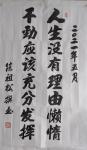 二〇二一年五月
人生没有理由懒惰
不动应该充分发挥
陈祖松撰书